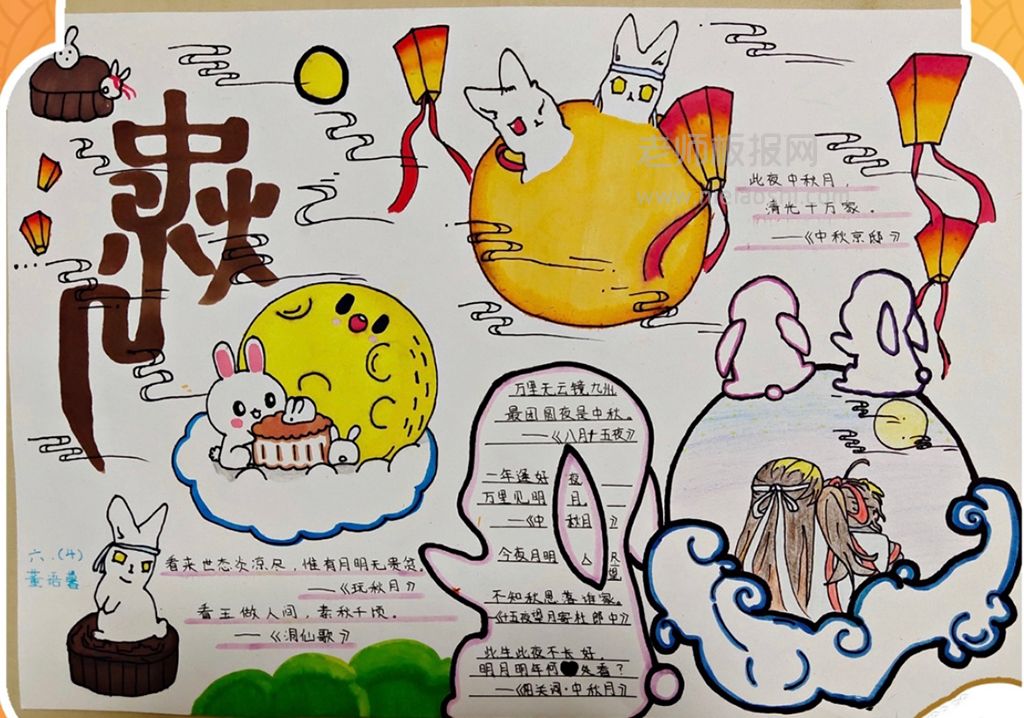 中秋
老师板报网
此夜中秋月,
清光十万家。
——《中秋京邸》
万里无云镜九州
最团圆夜是中秋。
——《八月十五夜》
一年逢好夜
万里见明月
——《中秋月》
今夜月明人尽望
不知秋思落谁家。
《十五夜望月寄杜郎中》
此生此夜不长好,
明月明年何处看?
——《阳关词·中秋月》
六.(4)
看来世态炎凉尽,惟有月明无贵贫。
——《玩秋月》
看玉做人间,素秋千顷。
——《洞仙歌》